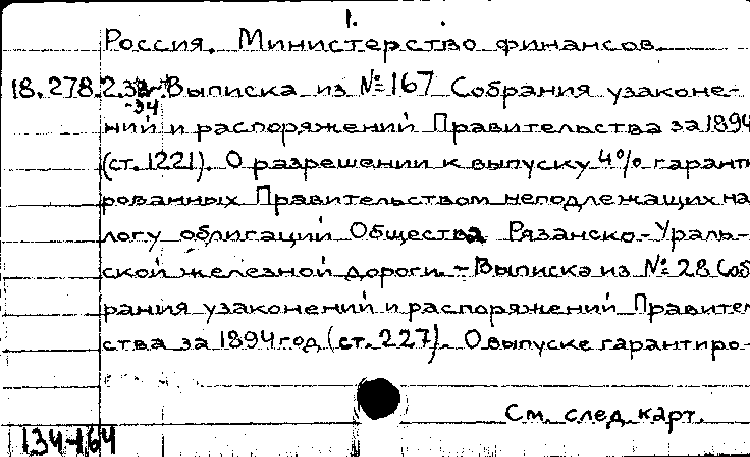 1.
Россия. Министерство финансов.
18.278.2.32- Выписка из №167 Собрания узаконе-
-34
ний и распоряжений Правительства за 1894
(ст. 1221). О разрешении к выпуску 4% гаранти
рованных Правительством неподлежащих на
логу облигаций Общества Рязанско-Ураль-
ской железной дороги. - Выписка из № 28 Соб
рания узаконений и распоряжений Правител
ства за 1894 год (ст. 227). О выпуске гарантиро-
См. след. карт.
134-164